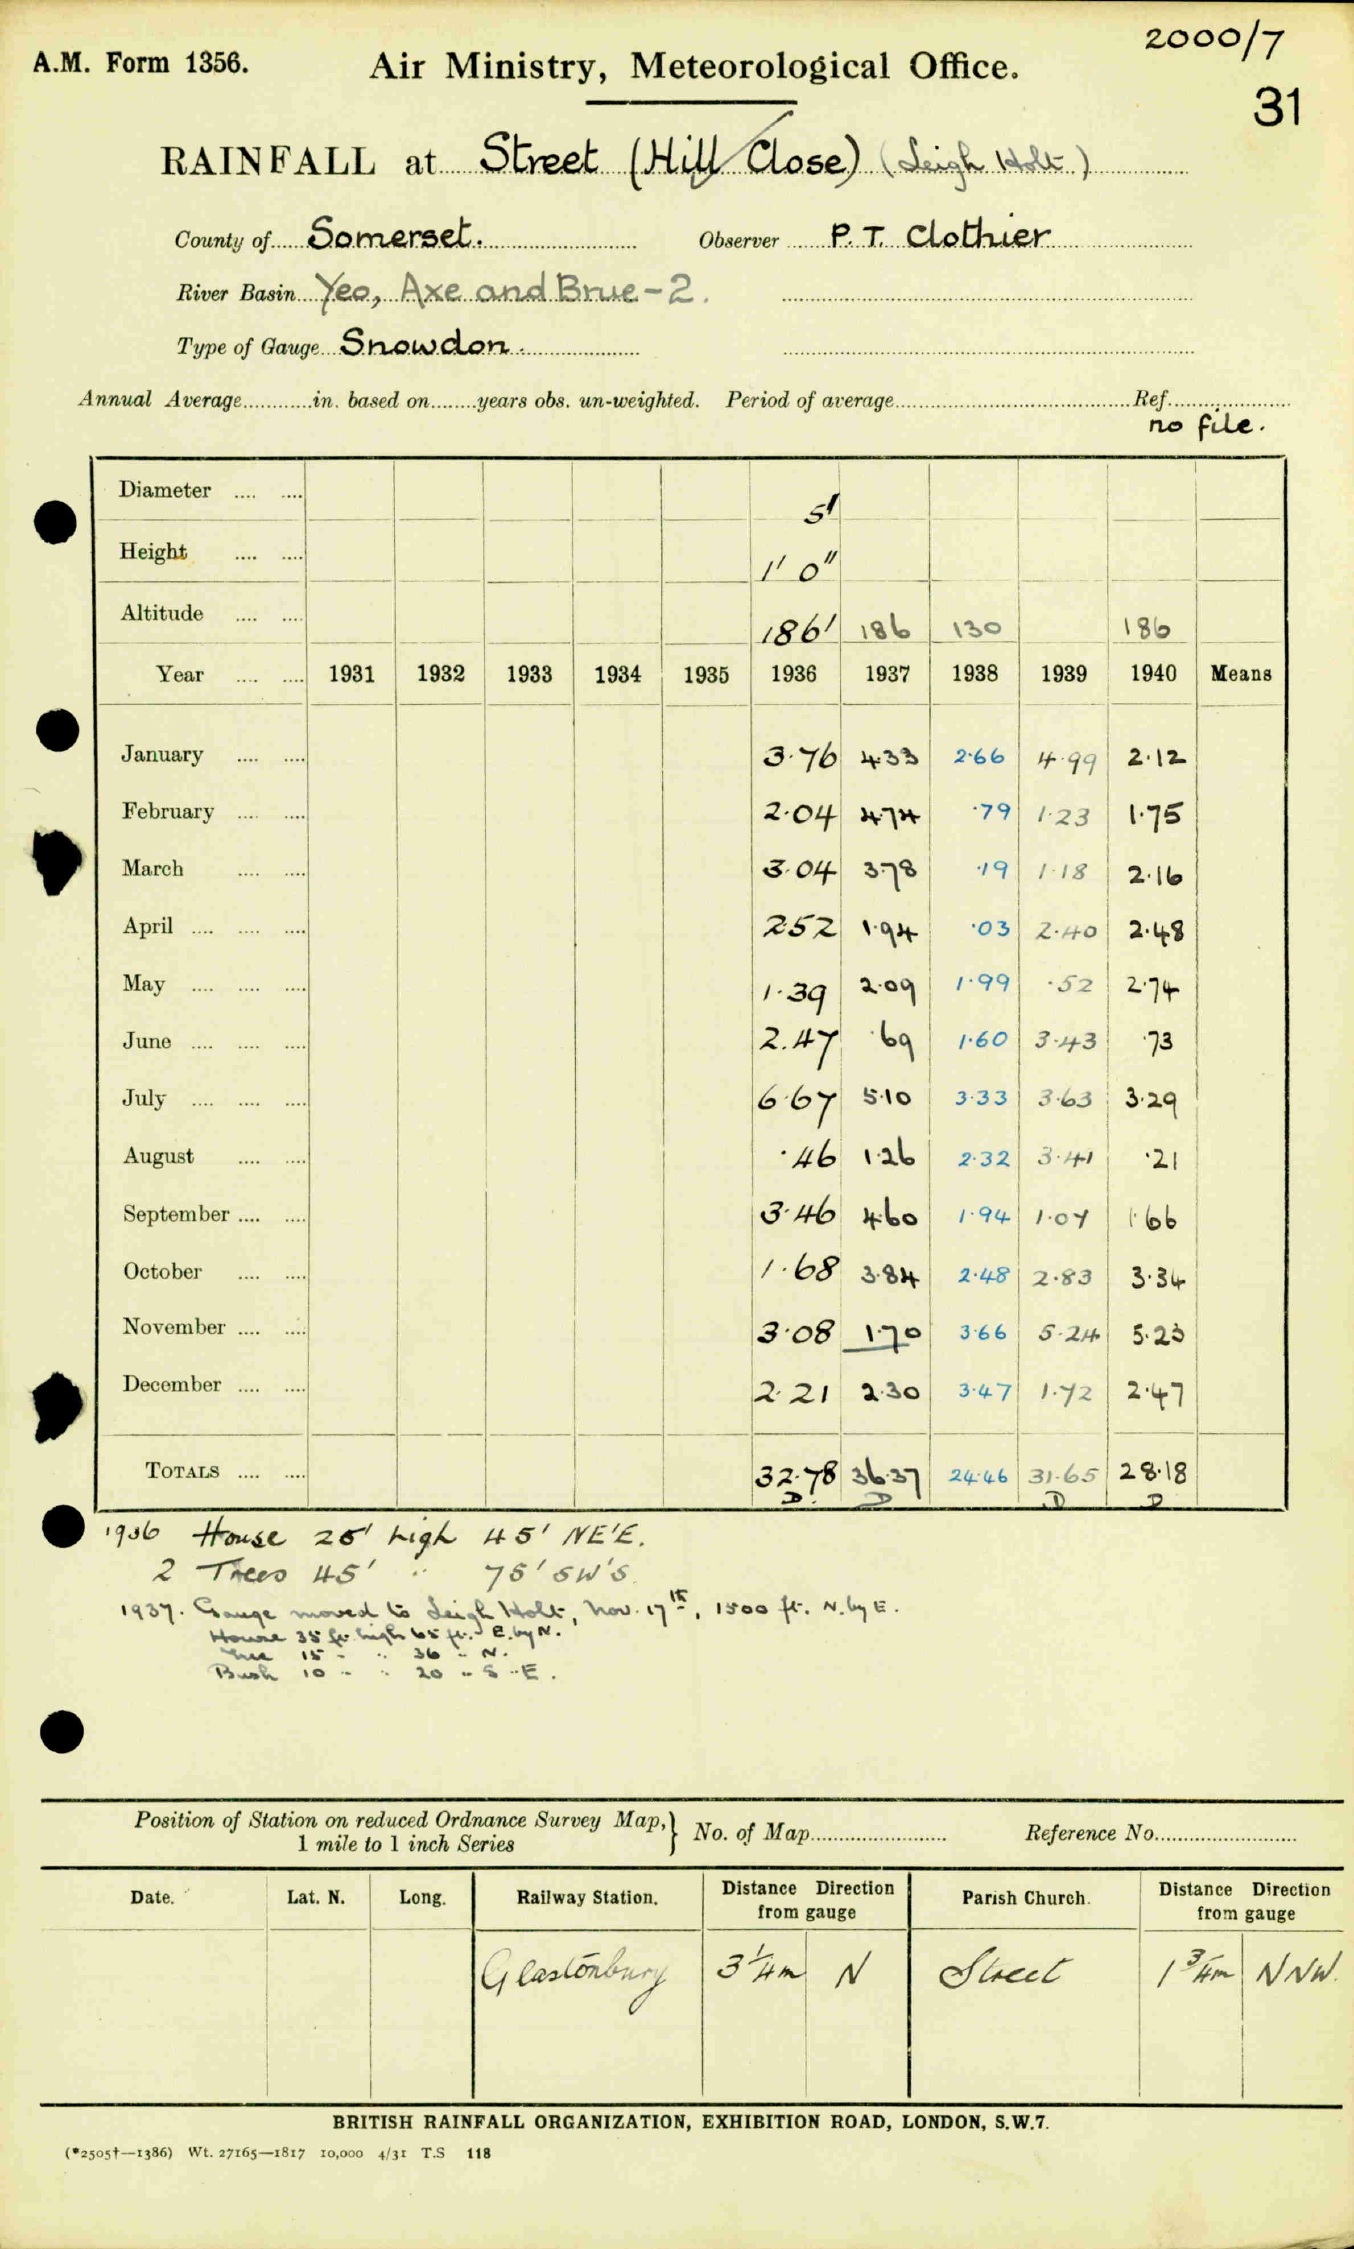 2000/7
A.M. Form 1356. Air Ministry, Meteorological Office.
31
RAINFALL at Street (Hill Close) (Leigh Holt)
County of Somerset. Observer P.T. Clothier
River Basin Yeo, Axe and Brue-2.
Type of Gauge Snowdon.
Annual Average............in. based on........years obs. un-weighted. Period of average............ Ref............
no file.
Diameter .... .... 5"
Height .... .... 1' 0"
Altitude .... .... 186' 186 130 186
Year .... .... 1931 1932 1933 1934 1935 1936 1937 1938 1939 1940 Means
January .... .... 3.76 4.33 2.66 4.99 2.12
February .... .... 2.04 4.74 .79 1.23 1.75
March .... .... 3.04 3.78 .19 1.18 2.16
April .... .... .... 2.52 1.94 .03 2.40 2.48
May .... .... .... 1.39 2.09 1.99 .52 2.74
June .... .... .... 2.47 .69 1.60 3.43 .73
July .... .... .... 6.67 5.10 3.33 3.63 3.29
August .... .... .46 1.26 2.32 3.41 .21
September .... .... 3.46 4.60 1.94 1.07 1.66
October .... .... 1.68 3.84 2.48 2.83 3.34
November .... .... 3.08 1.70 3.66 5.24 5.23
December .... .... 2.21 2.30 3.47 1.72 2.47
TOTALS .... .... 32.78 36.37 24.46 31.65 28.18
D. D D D
1936 House 25' high 45' NE'E.
2 Trees 45' " 75' SW'S.
1937. Gauge moved to Leigh Holt, Nov. 17th, 1500 ft. N. by E.
House 35 ft. high 65 ft. E. by N.
Tree 15 " " 36 " N.
Bush 10 " " 20 " S - E.
Position of Station on reduced Ordnance Survey Map, } No. of Map............ Reference No............
1 mile to 1 inch Series
Date. Lat. N. Long. Railway Station. Distance Direction from gauge Parish Church. Distance Direction from gauge
Glastonbury 3 1/4 m N Street 1 3/4 m NNW.
BRITISH RAINFALL ORGANIZATION, EXHIBITION ROAD, LONDON, S.W.7.
(*2505†—1386) Wt. 27165—1817 10,000 4/31 T.S 118